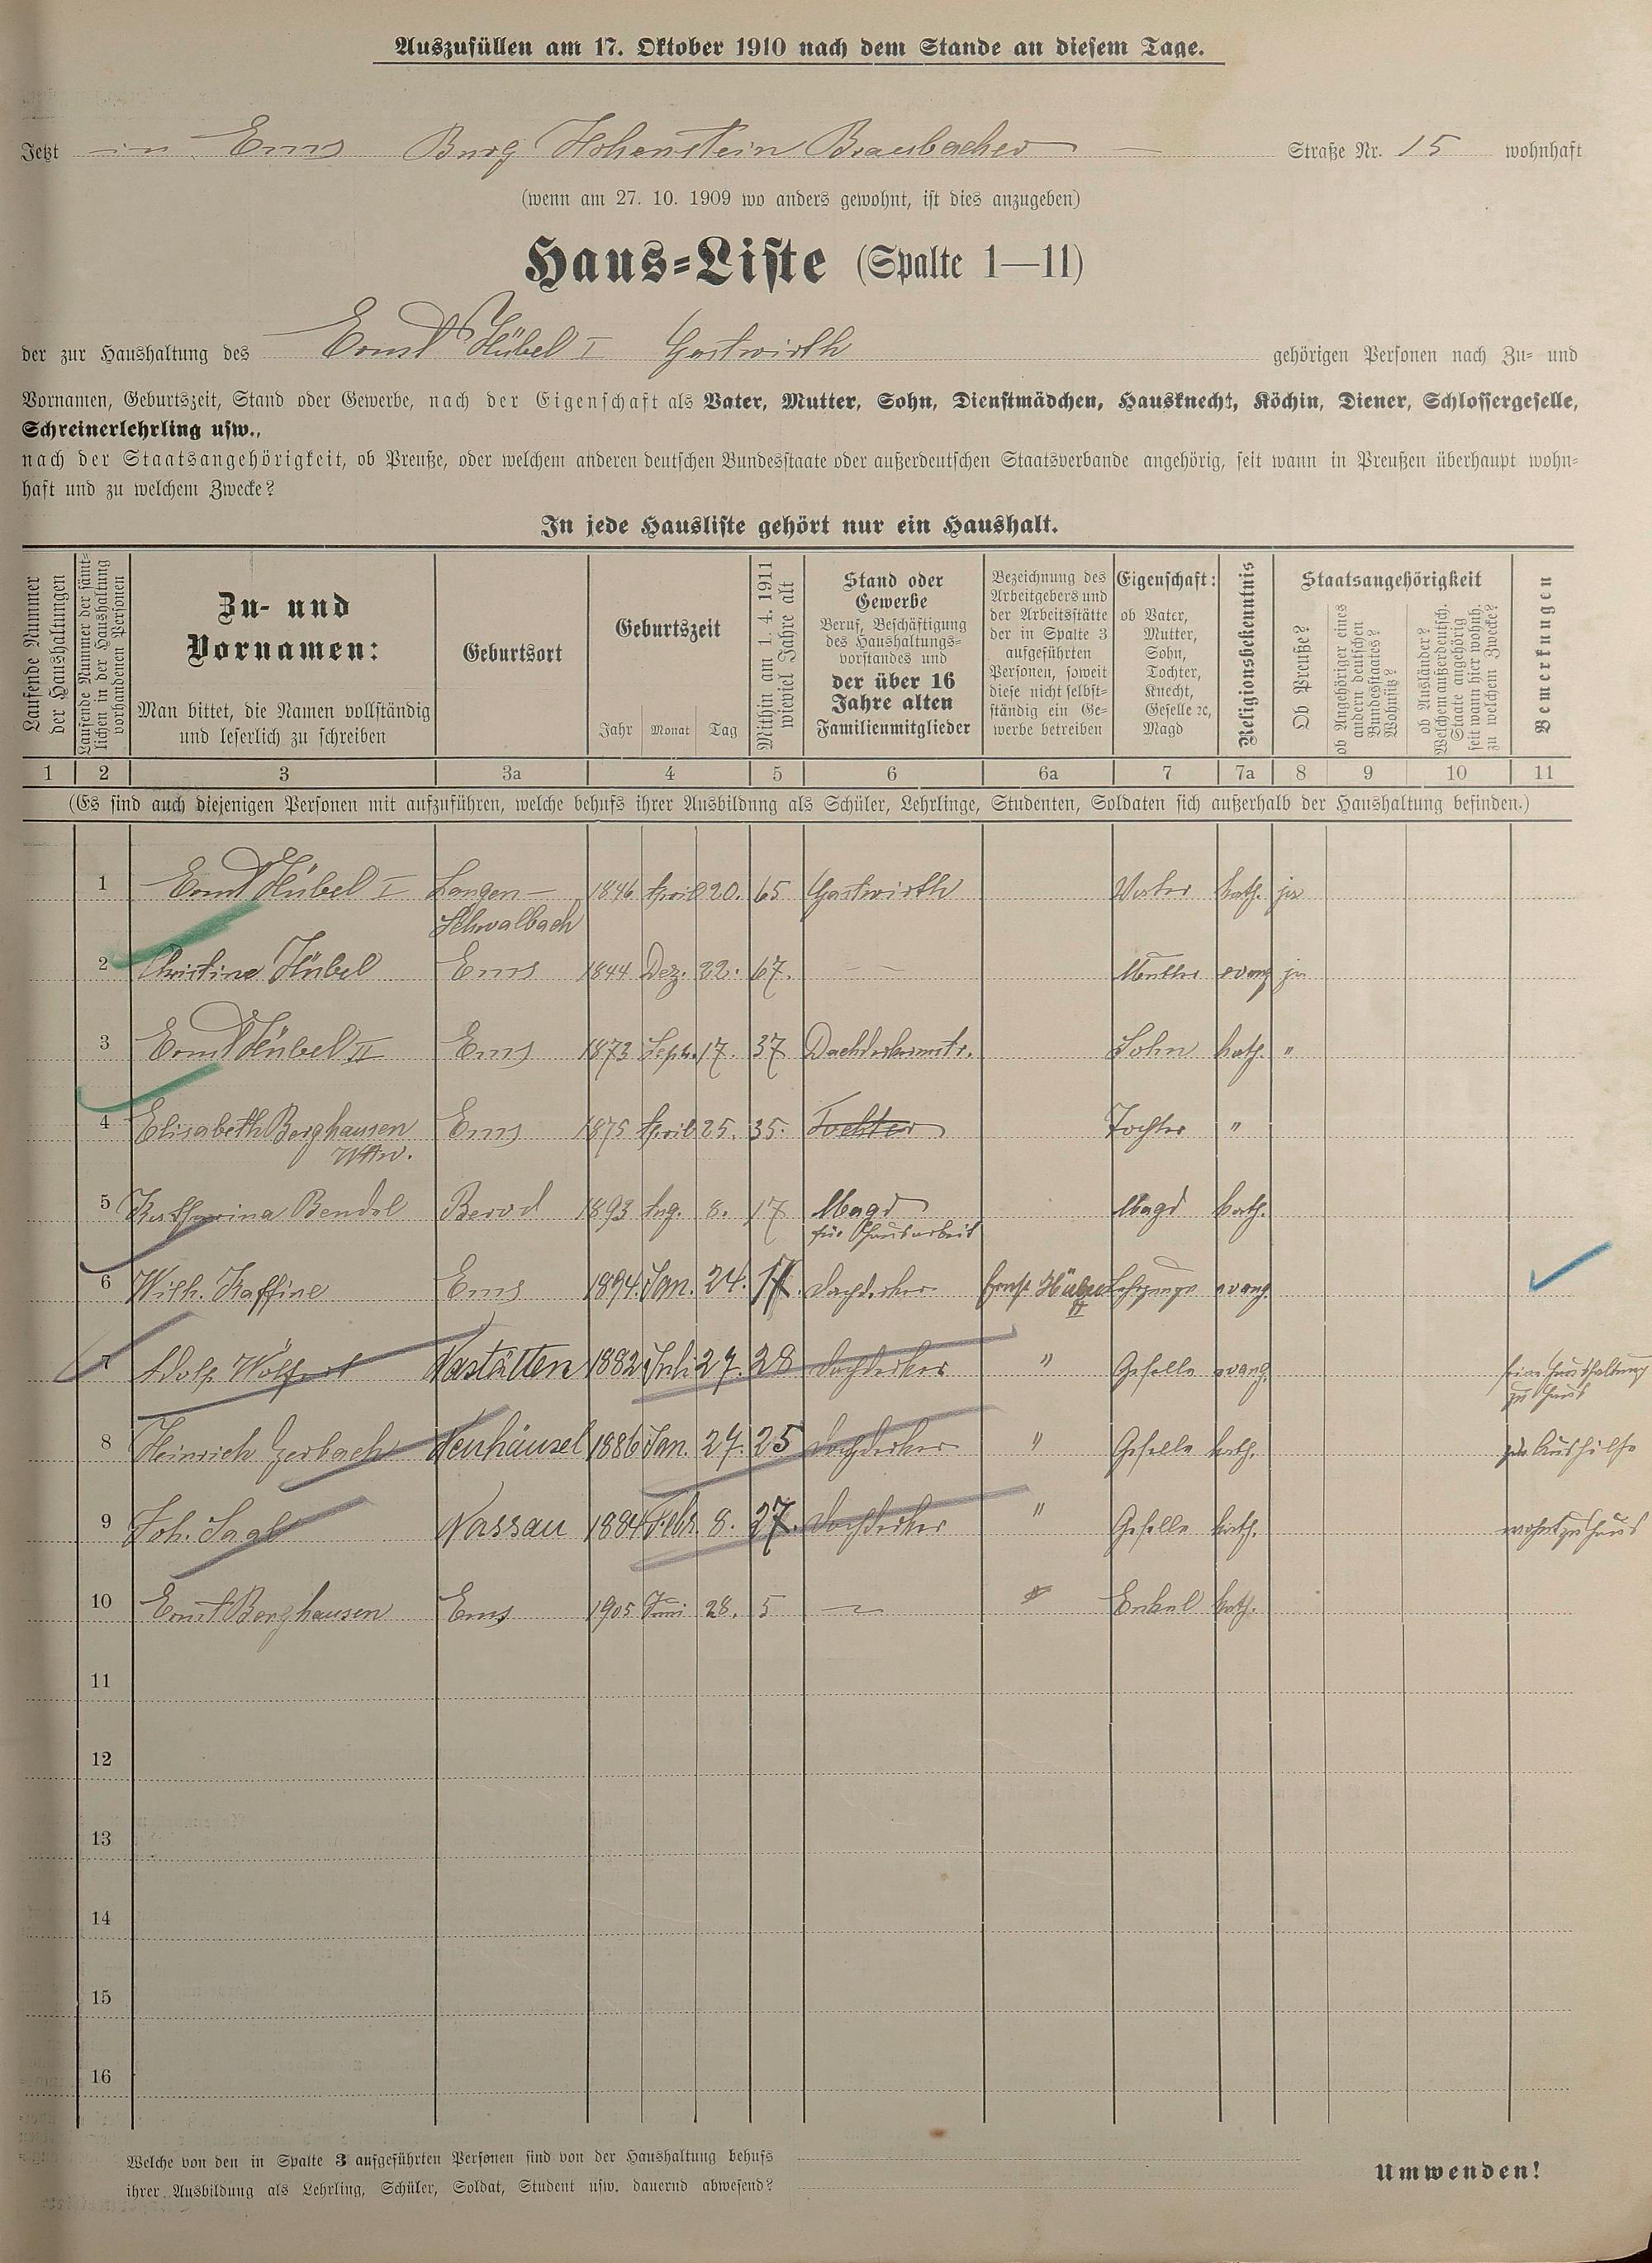 Auszufüllen am 17. Oktober 1910 nach dem Stande an diesem Tage.
Jetzt in Ems Burg Hohenstein Braubacher Straße Nr. 15 wohnhaft
(wenn am 27. 10. 1909 wo anders gewohnt, ist dies anzugeben)
Haus-Liste (Spalte 1—11)
der zur Haushaltung des Ernst Hübel I Gastwirth gehörigen Personen nach Zu- und
Vornamen, Geburtszeit, Stand oder Gewerbe, nach der Eigenschaft als Vater, Mutter, Sohn, Dienstmädchen, Hausknecht, Köchin, Diener, Schlossergeselle,
Schreinerlehrling usw.,
nach der Staatsangehörigkeit, ob Preuße, oder welchem anderen deutschen Bundesstaate oder außerdeutschen Staatsverbande angehörig, seit wann in Preußen überhaupt wohn-
haft und zu welchem Zwecke?
In jede Hausliste gehört nur ein Haushalt.
Laufende Nummer
der Haushaltungen
Laufende Nummer der sämt-
lichen in der Haushaltung
vorhandenen Personen
Zu- und
Vornamen:
Man bittet, die Namen vollständig
und leserlich zu schreiben
Geburtsort
Geburtszeit
Jahr Monat Tag
Mithin am 1. 4. 1911
wieviel Jahre alt
Stand oder
Gewerbe
Beruf, Beschäftigung
des Haushaltungs-
vorstandes und
der über 16
Jahre alten
Familienmitglieder
Bezeichnung des
Arbeitgebers und
der Arbeitsstätte
der in Spalte 3
aufgeführten
Personen, soweit
diese nicht selbst-
ständig ein Ge-
werbe betreiben
Eigenschaft:
ob Vater,
Mutter,
Sohn,
Tochter,
Knecht,
Geselle ꝛc,
Magd
Religionsbekenntnis
Staatsangehörigkeit
Ob Preuße?
ob Angehöriger eines
andern deutschen
Bundesstaates?
Wohnsitz?
ob Ausländer?
Welchem außerdeutsch.
Staate angehörig
seit wann hier wohnh.
zu welchem Zwecke?
Bemerkungen
1 2 3 3a 4 5 6 6a 7 7a 8 9 10 11
(Es sind auch diejenigen Personen mit aufzuführen, welche behufs ihrer Ausbildnng als Schüler, Lehrlinge, Studenten, Soldaten sich außerhalb der Haushaltung befinden.)
1 Ernst Hübel I Langen- 1846 April 20. 65 Gastwirth Vater kath. ja
Schwalbach
2 Christine Hübel Ems 1844 Dez. 22. 67. — Mutter evang ja
3 Ernst Hübel II Ems 1873 Sept. 17. 37 Dachdeckermstr. Sohn kath. "
4 Elisabeth Berghausen Ems 1875 April 25. 35. Tochter Tochter "
Wtw.
5 Katharina Bendel Berod 1893 Aug. 8. 17 Magd Magd kath.
für Hausarbeit
6 Wilh. Kaffine Ems 1894 Jan. 24. 17. Dachdecker Ernst Hübel Lehrjunge evang.
II
7 Adolf Wölfert Nastätten 1882 Juli 27. 28 Dachdecker " Geselle evang. seine Haushaltung
zu Haus
8 Heinrich Gerbach Neuhäusel 1886 Jan. 27. 25 Dachdecker " Geselle kath. zur Aushilfe
9 Joh. Sagl Nassau 1884 Febr. 8. 27. Dachdecker " Geselle kath. wohnt zu Haus
10 Ernst Berghausen Ems 1905 Juni 28. 5 — Enkel kath.
11
12
13
14
15
16
Welche von den in Spalte 3 aufgeführten Personen sind von der Haushaltung behufs
ihrer Ausbildung als Lehrling, Schüler, Soldat, Student usw. dauernd abwesend?
Umwenden!